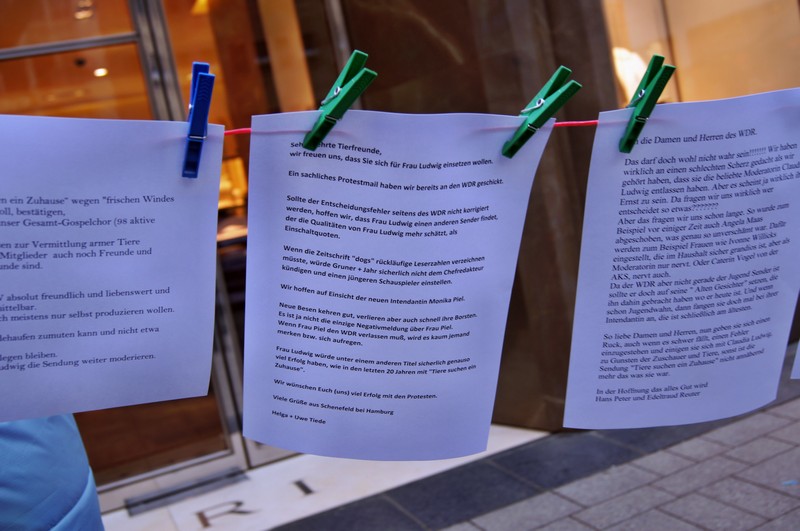 en ein Zuhause" wegen "frischen Windes
oll, bestätigen,
nser Gesamt-Gospelchor (98 aktive
en zur Vermittlung armer Tiere
Mitglieder auch noch Freunde und
unde sind.
absolut freundlich und liebenswert und
mittelbar.
ch meistens nur selbst produzieren wollen.
dehaufen zumuten kann und nicht etwa
legen bleiben.
udwig die Sendung weiter moderieren.
hrte Tierfreunde,
wir freuen uns, dass Sie sich für Frau Ludwig einsetzen wollen.
Ein sachliches Protestmail haben wir bereits an den WDR geschickt.
Sollte der Entscheidungsfehler seitens des WDR nicht korrigiert
werden, hoffen wir, dass Frau Ludwig einen anderen Sender findet,
der die Qualitäten von Frau Ludwig mehr schätzt, als
Einschaltquoten.
Wenn die Zeitschrift "dogs" rückläufige Leserzahlen verzeichnen
müsste, würde Gruner + Jahr sicherlich nicht dem Chefredakteur
kündigen und einen jüngeren Schauspieler einstellen.
Wir hoffen auf Einsicht der neuen Intendantin Monika Piel.
Neue Besen kehren gut, verlieren aber auch schnell ihre Borsten.
Es ist ja nicht die einzige Negativmeldung über Frau Piel.
Wenn Frau Piel den WDR verlassen muß, wird es kaum jemand
merken bzw. sich aufregen.
Frau Ludwig würde unter einem anderen Titel sicherlich genauso
viel Erfolg haben, wie in den letzten 20 Jahren mit "Tiere suchen ein
Zuhause".
Wir wünschen Euch (uns) viel Erfolg mit den Protesten.
Viele Grüße aus Schenefeld bei Hamburg
Helga + Uwe Tiede
n die Damen und Herren des WDR.
Das darf doch wohl nicht wahr sein!!!!!!! Wir haben
wirklich an einen schlechten Scherz gedacht als wir
gehört haben, dass sie die beliebte Moderatorin Claud
Ludwig entlassen haben. Aber es scheint ja wirklich ih
Ernst zu sein. Da fragen wir uns wirklich wer
entscheidet so etwas???????
Aber das fragen wir uns schon lange. So wurde zum
Beispiel vor einiger Zeit auch Angela Maas
abgeschoben, was genau so unverschämt war. Dafür
werden zum Beispiel Frauen wie Ivonne Willicks
eingestellt, die im Haushalt sicher grandios ist, aber als
Moderatorin nur nervt. Oder Caterin Vogel von der
AKS, nervt auch.
Da der WDR aber nicht gerade der Jugend Sender ist
sollte er doch auf seine " Alten Gesichter" setzen, die
ihn dahin gebracht haben wo er heute ist. Und wenn
schon Jugendwahn, dann fangen sie doch mal bei ihrer
Intendantin an, die ist schließlich am ältesten.
So liebe Damen und Herren, nun geben sie sich einen
Ruck, auch wenn es schwer fällt, einen Fehler
einzugestehen und einigen sie sich mit Claudia Ludwig
zu Gunsten der Zuschauer und Tiere, sonst ist die
Sendung "Tiere suchen ein Zuhause" nicht annähernd
mehr das was sie war.
In der Hoffnung das alles Gut wird
Hans Peter und Edeltraud Reuter
R I